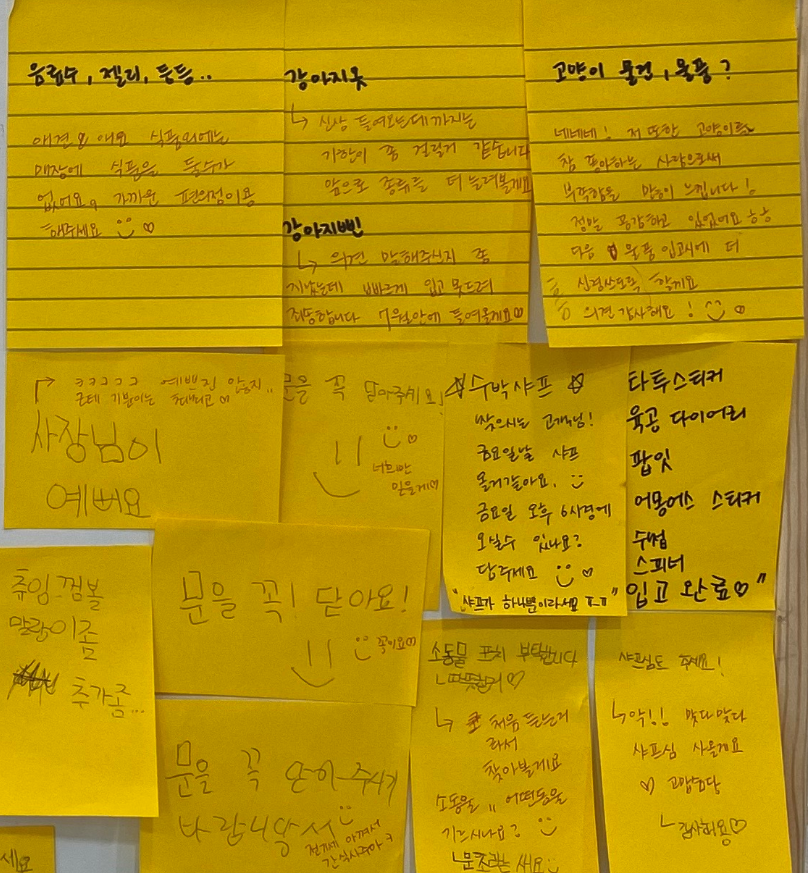 음료수, 젤리, 등등..
애견 외 식품외에는
매장에 식품을 둘수가
없어요. 가까운 편의점이용
해주세요
강아지옷
신상 들여오는데 까지는
기한이 좀 걸릴거 같습니다
앞으로 종류를 더 늘려볼게요
강아지삔
의견 말해주신지 좀
지났는데 빠르게 입고 못드려
죄송합니다 7월안에 들여올게요♡
고양이 물건, 용품?
네네네! 저 또한 고양이를
참 좋아하는 사람으로써
부족함을 많이 느낍니다!
정말 공감하고 있었어요 ㅎㅎ
다음 용품 입고시에 더
신경쓰도록 할게요
의견 감사해요! ♡
ㅋㅋㅋㅋㅋ 예쁘진 않은지..
근데 기분이는 최고 ♡
사장님이
예뻐요
문을 꼭 닫아주세요!
너희만 믿을게♡
☆수박샤프☆
찾으시는 고객님!
금요일날 샤프
올거같아요.
금요일 오후 6시경에
오실수 있나요?
답주세요 ♡
"샤프가 하나뿐이라서요 ㅠ_ㅠ"
타투스티커
육공 다이어리
팝잇
어몽어스 스티커
수첩
스피너
입고 완료♡"
말랑이좀
추가좀...
문을 꼭! 닫아요!
꼭이요♡
문을 꼭 닫아주시기
바랍니당
소동물 부탁합니다
처음 듣는거
라서
찾아볼게요
소동물 어떤동물
기르시나요?
샤프심도 주세요!
악!! 맞다 맞다
샤프심 사올게요
♡ 고맙습당
감사해용♡
세요